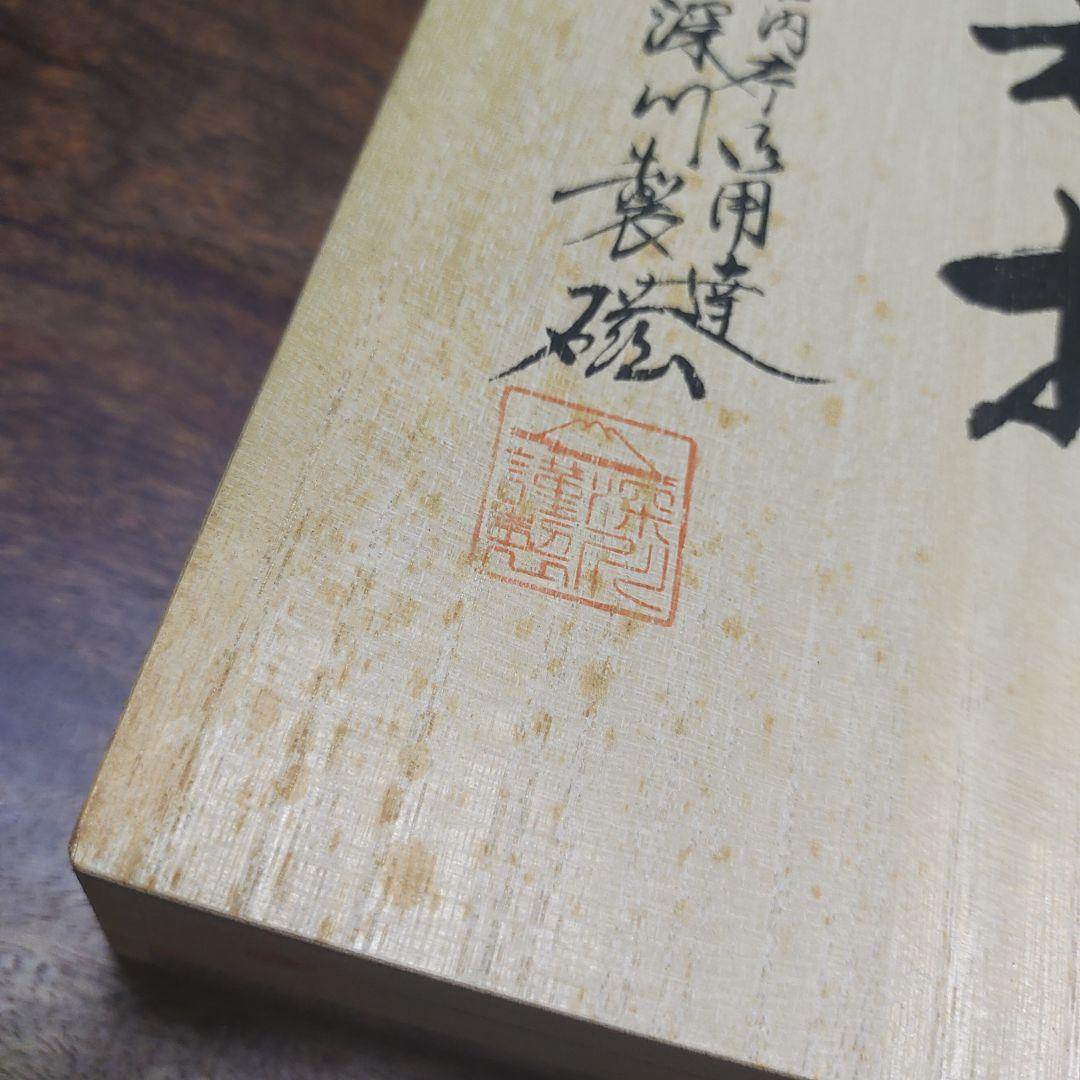 内庁御用達
深川製磁
深川
謹製